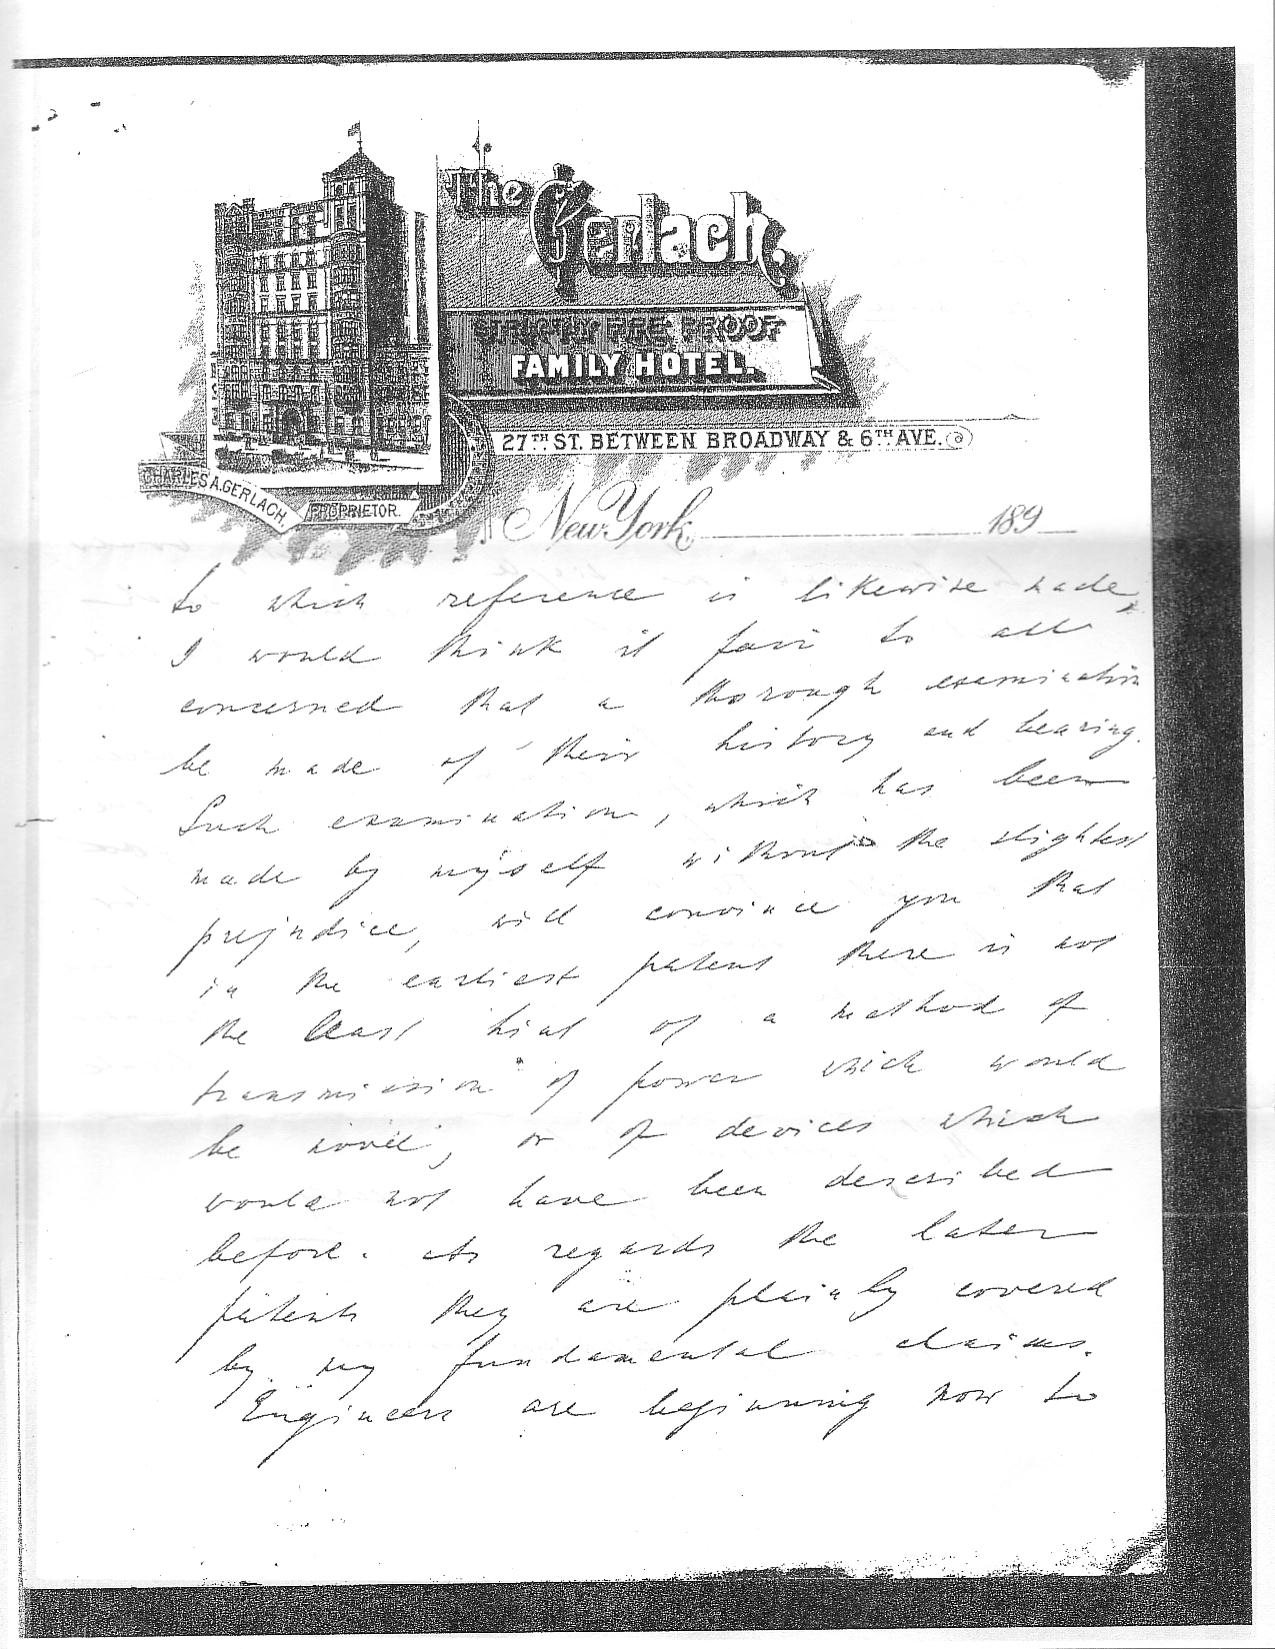 The Gerlach.
STRICTLY FIRE PROOF
FAMILY HOTEL.
27TH ST. BETWEEN BROADWAY & 6TH AVE.
CHARLES A. GERLACH,
PROPRIETOR.
New York, 189
to which reference is likewise made,
I would think it fair to all
concerned that a thorough examination
be made of their history and bearing.
Such examination, which has been
made by myself without the slightest
prejudice, will convince you that
in the earliest patent there is not
the least hint of a method of
transmission of power which would
be novel, or of devices which
would not have been described
before. As regards the later
patents they are plainly covered
by my fundamental claims.
Engineers are beginning now to